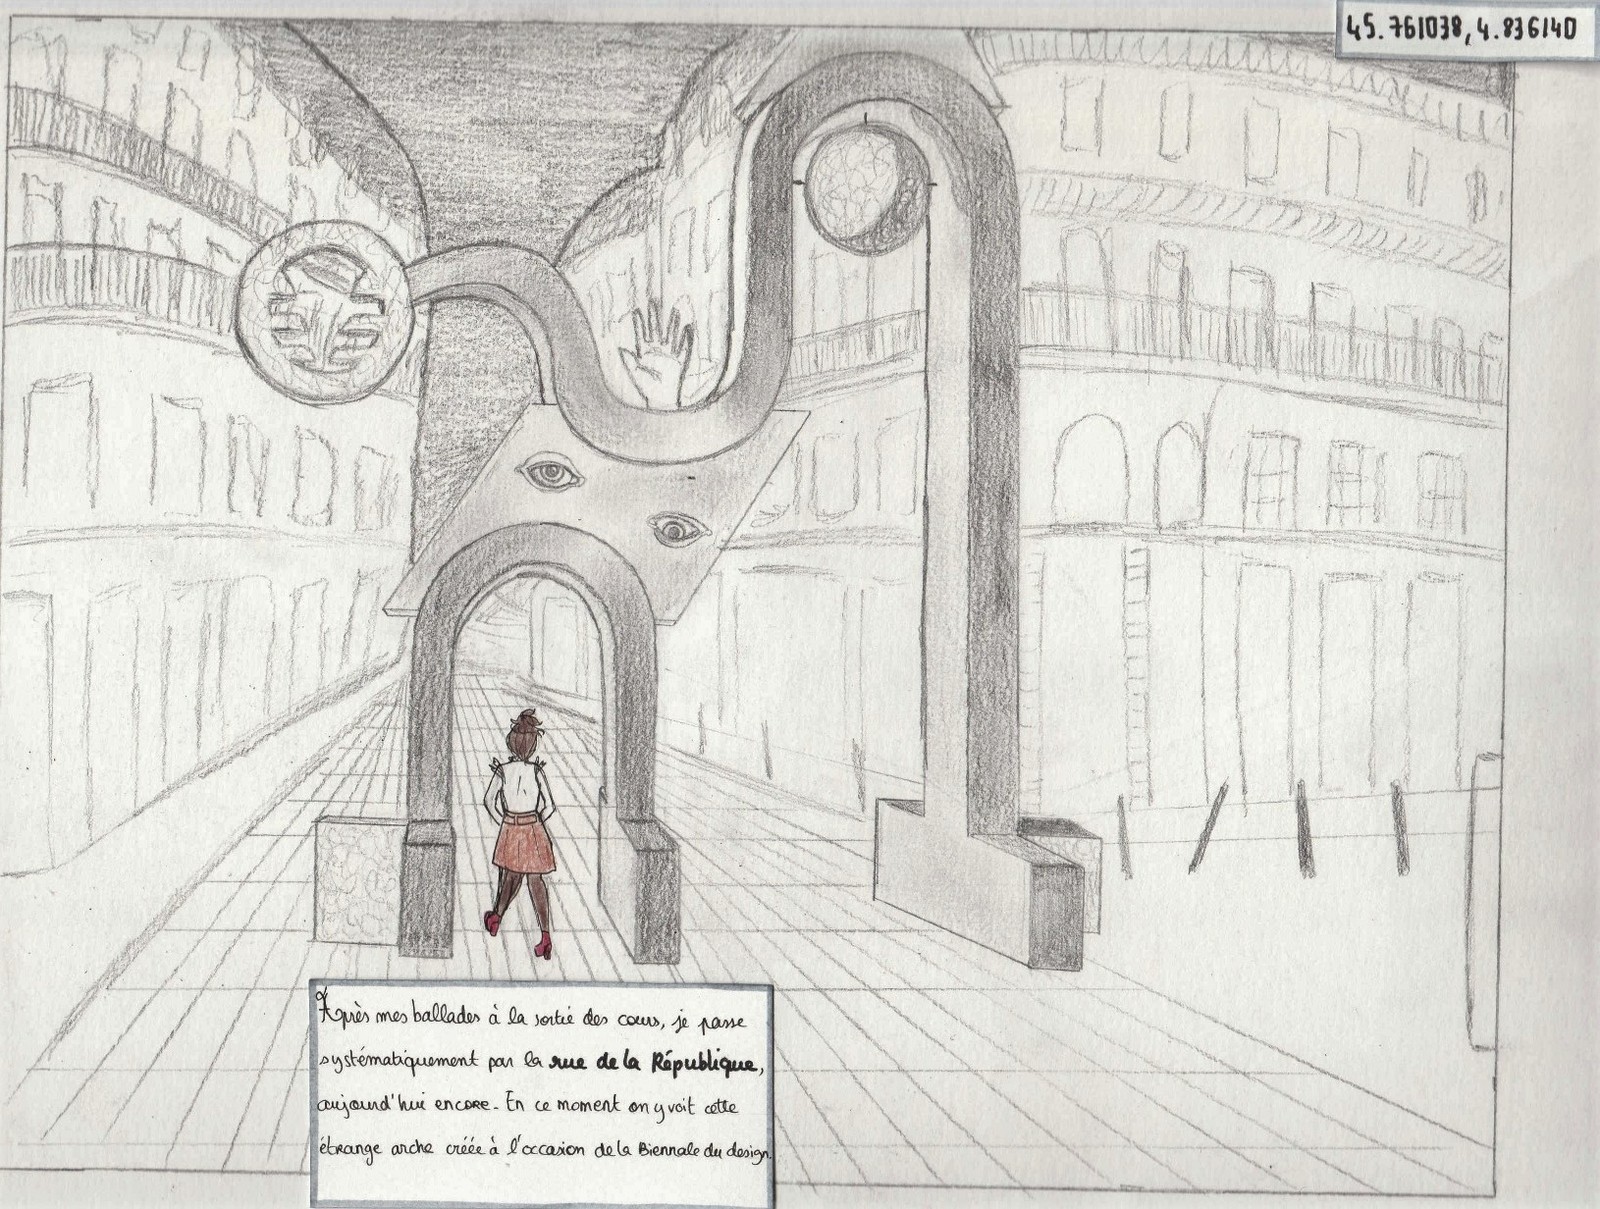 45.761038, 4.836140
Après mes ballades à la sortie des cours, je passe
systématiquement par la rue de la République,
aujourd'hui encore. En ce moment on y voit cette
étrange arche créée à l'occasion de la Biennale du design.